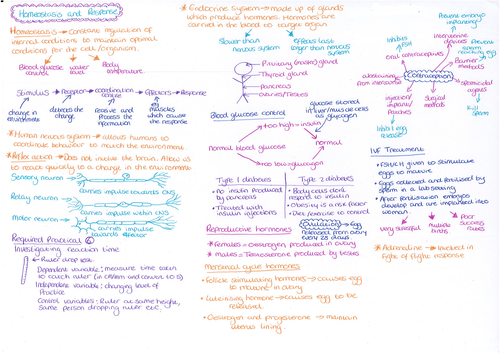 Homeostasis and Response
Homeostasis → Constant regulation of
internal conditions to maintain optimal
conditions for the cell/organism.
Blood glucose
control
water
level
Body
temperature
Stimulus → Receptor → coordination
centre → Effectors → Response
change in
environment
detects the
change
receive and
process the
information
muscles
which cause
the response
* Human nervous system → allows humans to
coordinate behaviour to match the environment.
* Reflex action → Does not involve the brain. Allow us
to react quickly to a change in the environment.
Sensory neuron
carries impulse towards CNS
Relay neuron
carries impulse within CNS
motor neuron
carries impulse
towards effector
Required Practical 6
Investigating reaction time
Ruler drop test
Dependent variable: measure time taken
to catch ruler (in cm/mm and convert to s)
Independent variable: changing level of
Practice
Control variables: Ruler at same height,
same person dropping ruler etc.
* Endocrine System → made up of glands
which produce hormones. Hormones are
carried in the blood to target organ
Slower than
nervous system
Effects last
longer than nervous
system
Pituitary (master) gland
Thyroid gland
Pancreas
Ovaries/Testes
Blood glucose control
glucose stored
in liver/muscle cells
as glycogen
too high = insulin
Normal blood glucose
normal
too low = glucagon
Type 1 diabetes
• no insulin produced
by pancreas
• Treated with
insulin injections
Type 2 diabetes
• Body cells don't
respond to insulin
• Obesity is a risk factor
• Diet/exercise to control
Reproductive hormones
Ovulation → egg
released from ovary
every 28 days
* females = Oestrogen, produced in ovary
* males = Testosterone produced by testes
Menstrual cycle hormones
• Follicle stimulating hormone → causes egg
to mature in ovary
• Luteinising hormone → causes egg to be
released.
• Oestrogen and progesterone → maintain
uterus lining.
Contraception
Inhibits
FSH
oral contraceptives
Prevent embryo
implanting
Intrauterine
devices
Prevent
sperm
reaching egg
Barrier
methods
spermicidal
agents
kill
sperm
Surgical
methods
injection/
implants/
Patches
Inhibit egg
release
abstaining
from
intercourse
IVF Treatment
• FSH/LH given to stimulate
eggs to mature
• Eggs collected and fertilised by
sperm in a lab setting
• After fertilisation embryos
develop and are implanted into
womb
very stressful
multiple
births
Poor
success
rates
* Adrenaline → Involved in
fight or flight response